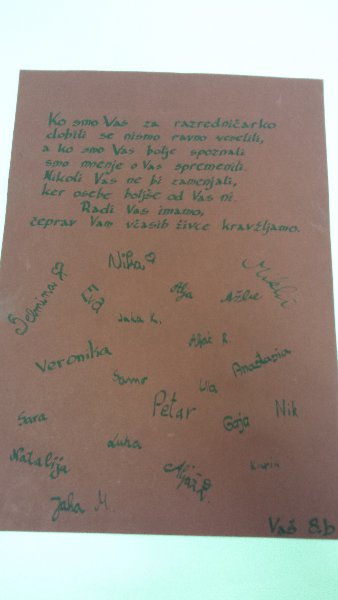 Ko smo Vas za razredničarko
dobili se nismo ravno veselili,
a ko smo Vas bolje spoznali
smo mnenje o Vas spremenili.
Nikoli Vas ne bi zamenjali,
ker osebe boljše od Vas ni.
Radi Vas imamo,
čeprav Vam včasih živce kravžljamo.
Nika
Elma
Eva
Alja
Ažbe
Jaka K.
Aljaž R.
Veronika
Anastasia
Samo
Ula
Petar
Nik
Sara
Gaja
Luka
Natalija
Jaka M.
Vaš 8.b